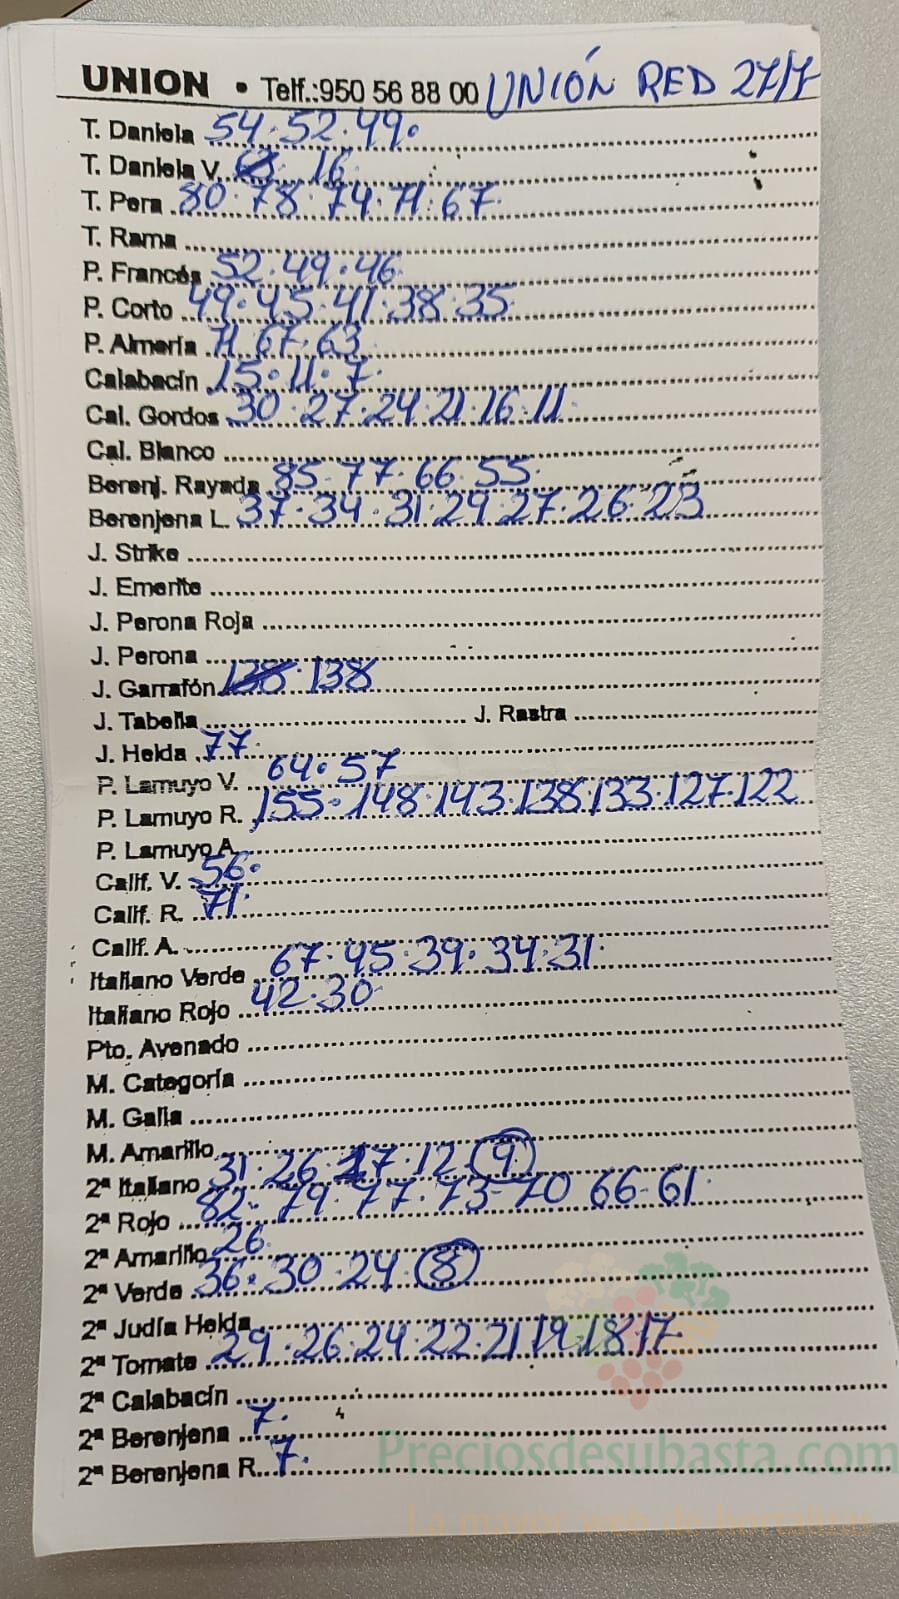 UNION • Telf.:950 56 88 00 UNIÓN RED 27/7
T. Daniela 54·52·49·
T. Daniela V. 16
T. Pera 80·78·74·71·67
T. Rama
P. Francés 52·49·46
P. Corto 49·45·41·38·35
P. Almería 71·67·63
Calabacín 15·11·7·
Cal. Gordos 30·27·24·21·16·11
Cal. Blanco
Berenj. Rayada 85·77·66·55·
Berenjena L. 37·34·31·29·27·26·23
J. Strike
J. Emerite
J. Perona Roja
J. Perona
J. Garrafón 138·138
J. Tabella J. Rastra
J. Helda 77·
P. Lamuyo V. 64·57
P. Lamuyo R. 155·148·143·138·133·127·122
P. Lamuyo A.
Calif. V. 56·
Calif. R. 71·
Calif. A.
Italiano Verde 67·45·39·34·31·
Italiano Rojo 42·30
Pto. Avenado
M. Categoría
M. Galia
M. Amarillo
2ª Italiano 31·26·17·12 9
2ª Rojo 82·79·77·73-70 66-61·
2ª Amarillo 26
2ª Verde 36·30·24 8
2ª Judía Helda
2ª Tomate 29·26·24·22·21 19·18·17
2ª Calabacín
2ª Berenjena 7·
2ª Berenjena R. 7·
Preciosdesubasta.com
La mayor web de hortalizas